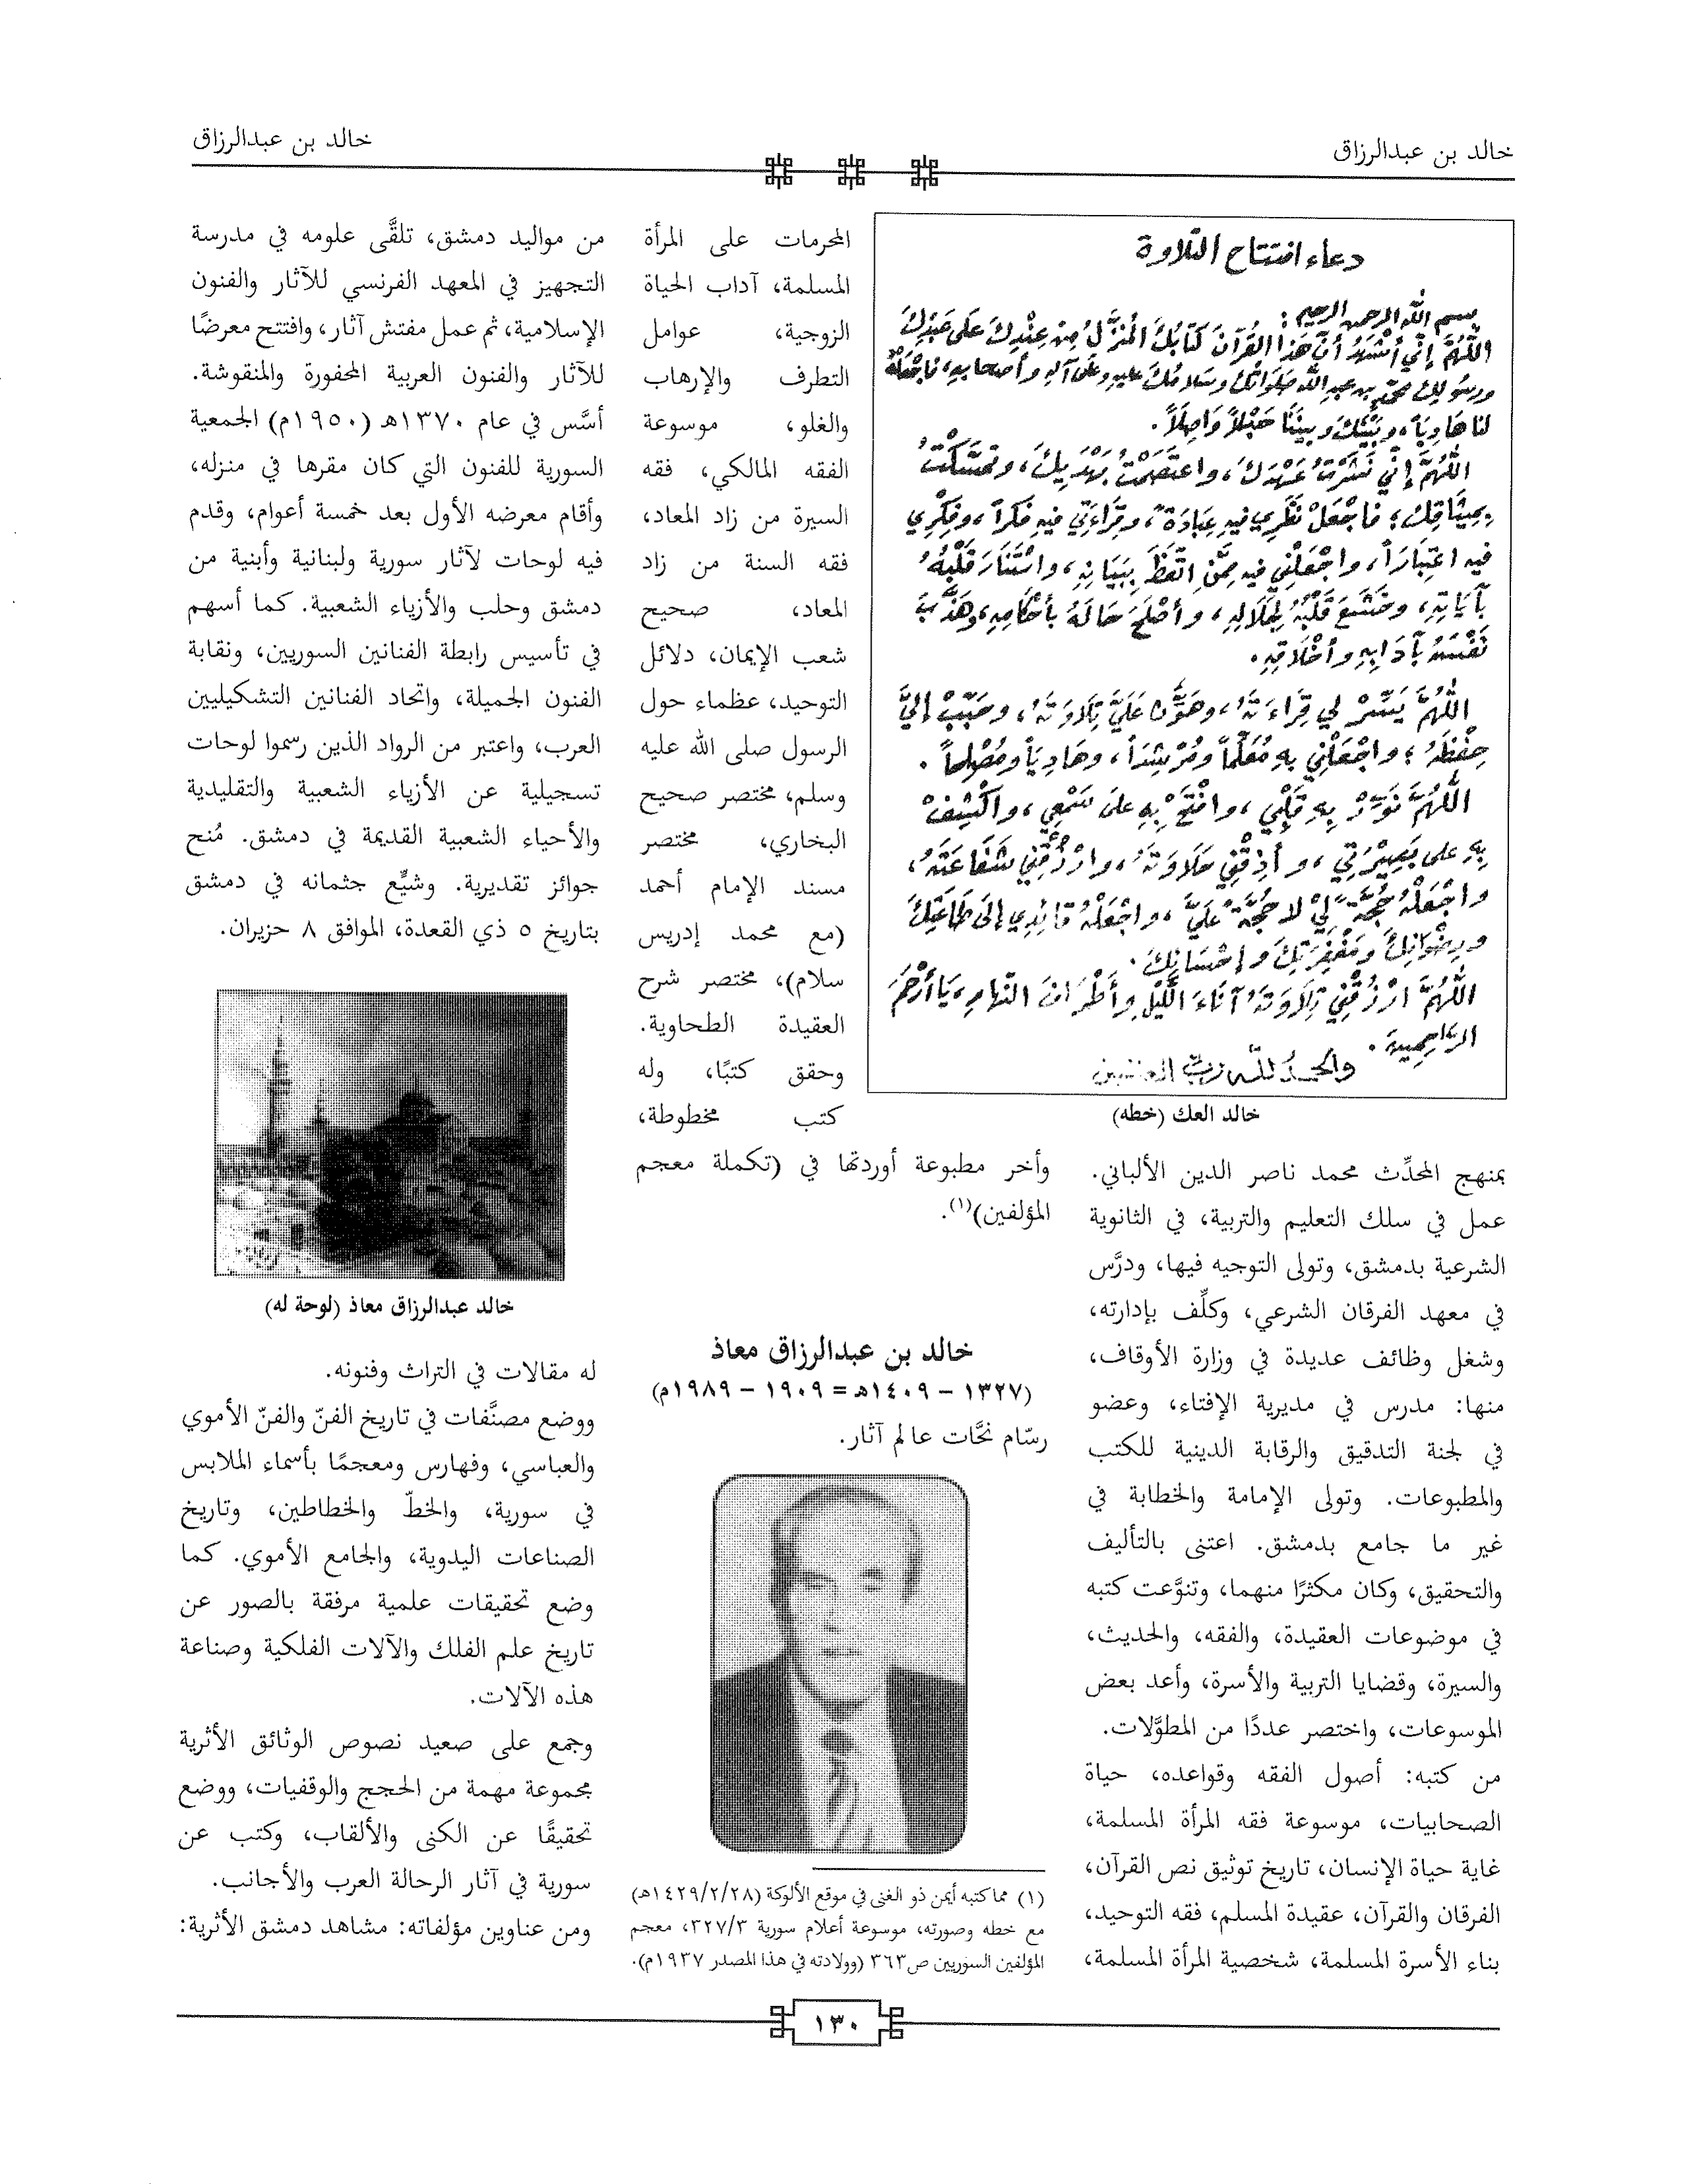 خالد بن عبدالرزاق
خالد بن عبدالرزاق
دعاء افتتاح التلاوة
بسم الله الرحمن الرحيم :
اللَّهُمَّ إنِّي أُشْهِدُ أنَّ هَذا القُرآنَ كتَابُكَ المُنزَّلُ مِنْ عِنْدِكَ عَلى عَبْدِكَ
ورسُولِكَ محمَّدِ بن عبدِ اللَّهِ صَلَوَاتُكَ وسَلامُكَ عليهِ وعلى آلهِ وأصحابهِ، فاجْعَلْهُ
لنا هَادِياً، وبَيْنَكَ وبينَنَا حَبْلاً وَاصِلاً.
اللَّهُمَّ إنِّي نَشَرْتُ عَهْدَكَ، واعتَصَمْتُ بهَدْيِكَ، وتمسَّكْتُ
بميثَاقِكَ؛ فاجْعَلْ نَظَرِي فيهِ عِبَادَةً، وقِرَاءَتي فيهِ فِكراً، وفِكْرِي
فيه اعتِبَاراً، واجْعَلْني فيه مِمَّنِ اتَّعَظَ ببَيَانِهِ، واسْتَنَارَ قَلْبُهُ
بآيَاتِهِ، وخَشَعَ قَلْبُهُ لِجَلالِهِ، وأصْلَحَ حَالَهُ بأحْكَامِهِ، وهَذَّبَ
نَفْسَهُ بآدَابِهِ وأخْلاقِهِ.
اللَّهُمَّ يَسِّرْ لي قِرَاءَتَهُ، وهَوِّنْ عَلَيَّ تِلاوَتَهُ، وحَبِّبْ إليَّ
حِفْظَهُ؛ واجْعَلْني بهِ مُعَلِّماً ومُرْشِداً، وهَادِياً ومُصْلِحاً.
اللَّهُمَّ نَوِّرْ بِهِ قَلْبي، وافْتَحْ بِهِ على سَمْعِي، واكْشِفْ
بِهِ على بَصِيْرَتي، وأذِقْني حَلاوَتَهُ، وارْزُقْني شَفَاعَتَهُ،
واجْعَلْهُ حُجَّةً لِيْ لا حُجَّةً عَلَيَّ، واجْعَلْهُ قَائِدِي إلى طَاعَتِكَ
ورِضْوَانِكَ ومَغْفِرَتِكَ وإحْسَانِكَ.
اللَّهُمَّ ارْزُقْني تِلاوَتَهُ آنَاءَ اللَّيْلِ وأَطْرَافَ النَّهارِ، يَا أَرْحَمَ
الرَّاحِمِينَ.
والحمدُ للّه ربِّ العالمين
خالد العك (خطه)
بمنهج المحدِّث محمد ناصر الدين الألباني.
عمل في سلك التعليم والتربية، في الثانوية
الشرعية بدمشق، وتولى التوجيه فيها، ودرَّس
في معهد الفرقان الشرعي، وكلِّف بإدارته،
وشغل وظائف عديدة في وزارة الأوقاف،
منها: مدرس في مديرية الإفتاء، وعضو
في لجنة التدقيق والرقابة الدينية للكتب
والمطبوعات. وتولى الإمامة والخطابة في
غير ما جامع بدمشق. اعتنى بالتأليف
والتحقيق، وكان مكثرًا منهما، وتنوَّعت كتبه
في موضوعات العقيدة، والفقه، والحديث،
والسيرة، وقضايا التربية والأسرة، وأعد بعض
الموسوعات، واختصر عددًا من المطوَّلات.
من كتبه: أصول الفقه وقواعده، حياة
الصحابيات، موسوعة فقه المرأة المسلمة،
غاية حياة الإنسان، تاريخ توثيق نص القرآن،
الفرقان والقرآن، عقيدة المسلم، فقه التوحيد،
بناء الأسرة المسلمة، شخصية المرأة المسلمة،
المحرمات على المرأة
المسلمة، آداب الحياة
الزوجية، عوامل
التطرف والإرهاب
والغلو، موسوعة
الفقه المالكي، فقه
السيرة من زاد المعاد،
فقه السنة من زاد
المعاد، صحيح
شعب الإيمان، دلائل
التوحيد، عظماء حول
الرسول صلى الله عليه
وسلم، مختصر صحيح
البخاري، مختصر
مسند الإمام أحمد
(مع محمد إدريس
سلام)، مختصر شرح
العقيدة الطحاوية.
وحقق كتبًا، وله
كتب مخطوطة،
وأخر مطبوعة أوردتها في (تكملة معجم
المؤلفين)(١).
خالد بن عبدالرزاق معاذ
(١٣٢٧ - ١٤٠٩هـ = ١٩٠٩ - ١٩٨٩م)
رسّام نحَّات عالم آثار.
(١) مما كتبه أيمن ذو الغنى في موقع الألوكة (١٤٢٩/٢/٢٨هـ)
مع خطه وصورته، موسوعة أعلام سورية ٣٢٧/٣، معجم
المؤلفين السوريين ص٣٦٣ (وولادته في هذا المصدر ١٩٣٧م).
من مواليد دمشق، تلقَّى علومه في مدرسة
التجهيز في المعهد الفرنسي للآثار والفنون
الإسلامية، ثم عمل مفتش آثار، وافتتح معرضًا
للآثار والفنون العربية المحفورة والمنقوشة.
أسَّس في عام ١٣٧٠هـ (١٩٥٠م) الجمعية
السورية للفنون التي كان مقرها في منزله،
وأقام معرضه الأول بعد خمسة أعوام، وقدم
فيه لوحات لآثار سورية ولبنانية وأبنية من
دمشق وحلب والأزياء الشعبية. كما أسهم
في تأسيس رابطة الفنانين السوريين، ونقابة
الفنون الجميلة، واتحاد الفنانين التشكيليين
العرب، واعتبر من الرواد الذين رسموا لوحات
تسجيلية عن الأزياء الشعبية والتقليدية
والأحياء الشعبية القديمة في دمشق. مُنح
جوائز تقديرية. وشيِّع جثمانه في دمشق
بتاريخ ٥ ذي القعدة، الموافق ٨ حزيران.
خالد عبدالرزاق معاذ (لوحة له)
له مقالات في التراث وفنونه.
ووضع مصنَّفات في تاريخ الفنّ والفنّ الأموي
والعباسي، وفهارس ومعجمًا بأسماء الملابس
في سورية، والخطّ والخطاطين، وتاريخ
الصناعات اليدوية، والجامع الأموي. كما
وضع تحقيقات علمية مرفقة بالصور عن
تاريخ علم الفلك والآلات الفلكية وصناعة
هذه الآلات.
وجمع على صعيد نصوص الوثائق الأثرية
مجموعة مهمة من الحجج والوقفيات، ووضع
تحقيقًا عن الكنى والألقاب، وكتب عن
سورية في آثار الرحالة العرب والأجانب.
ومن عناوين مؤلفاته: مشاهد دمشق الأثرية:
١٣٠